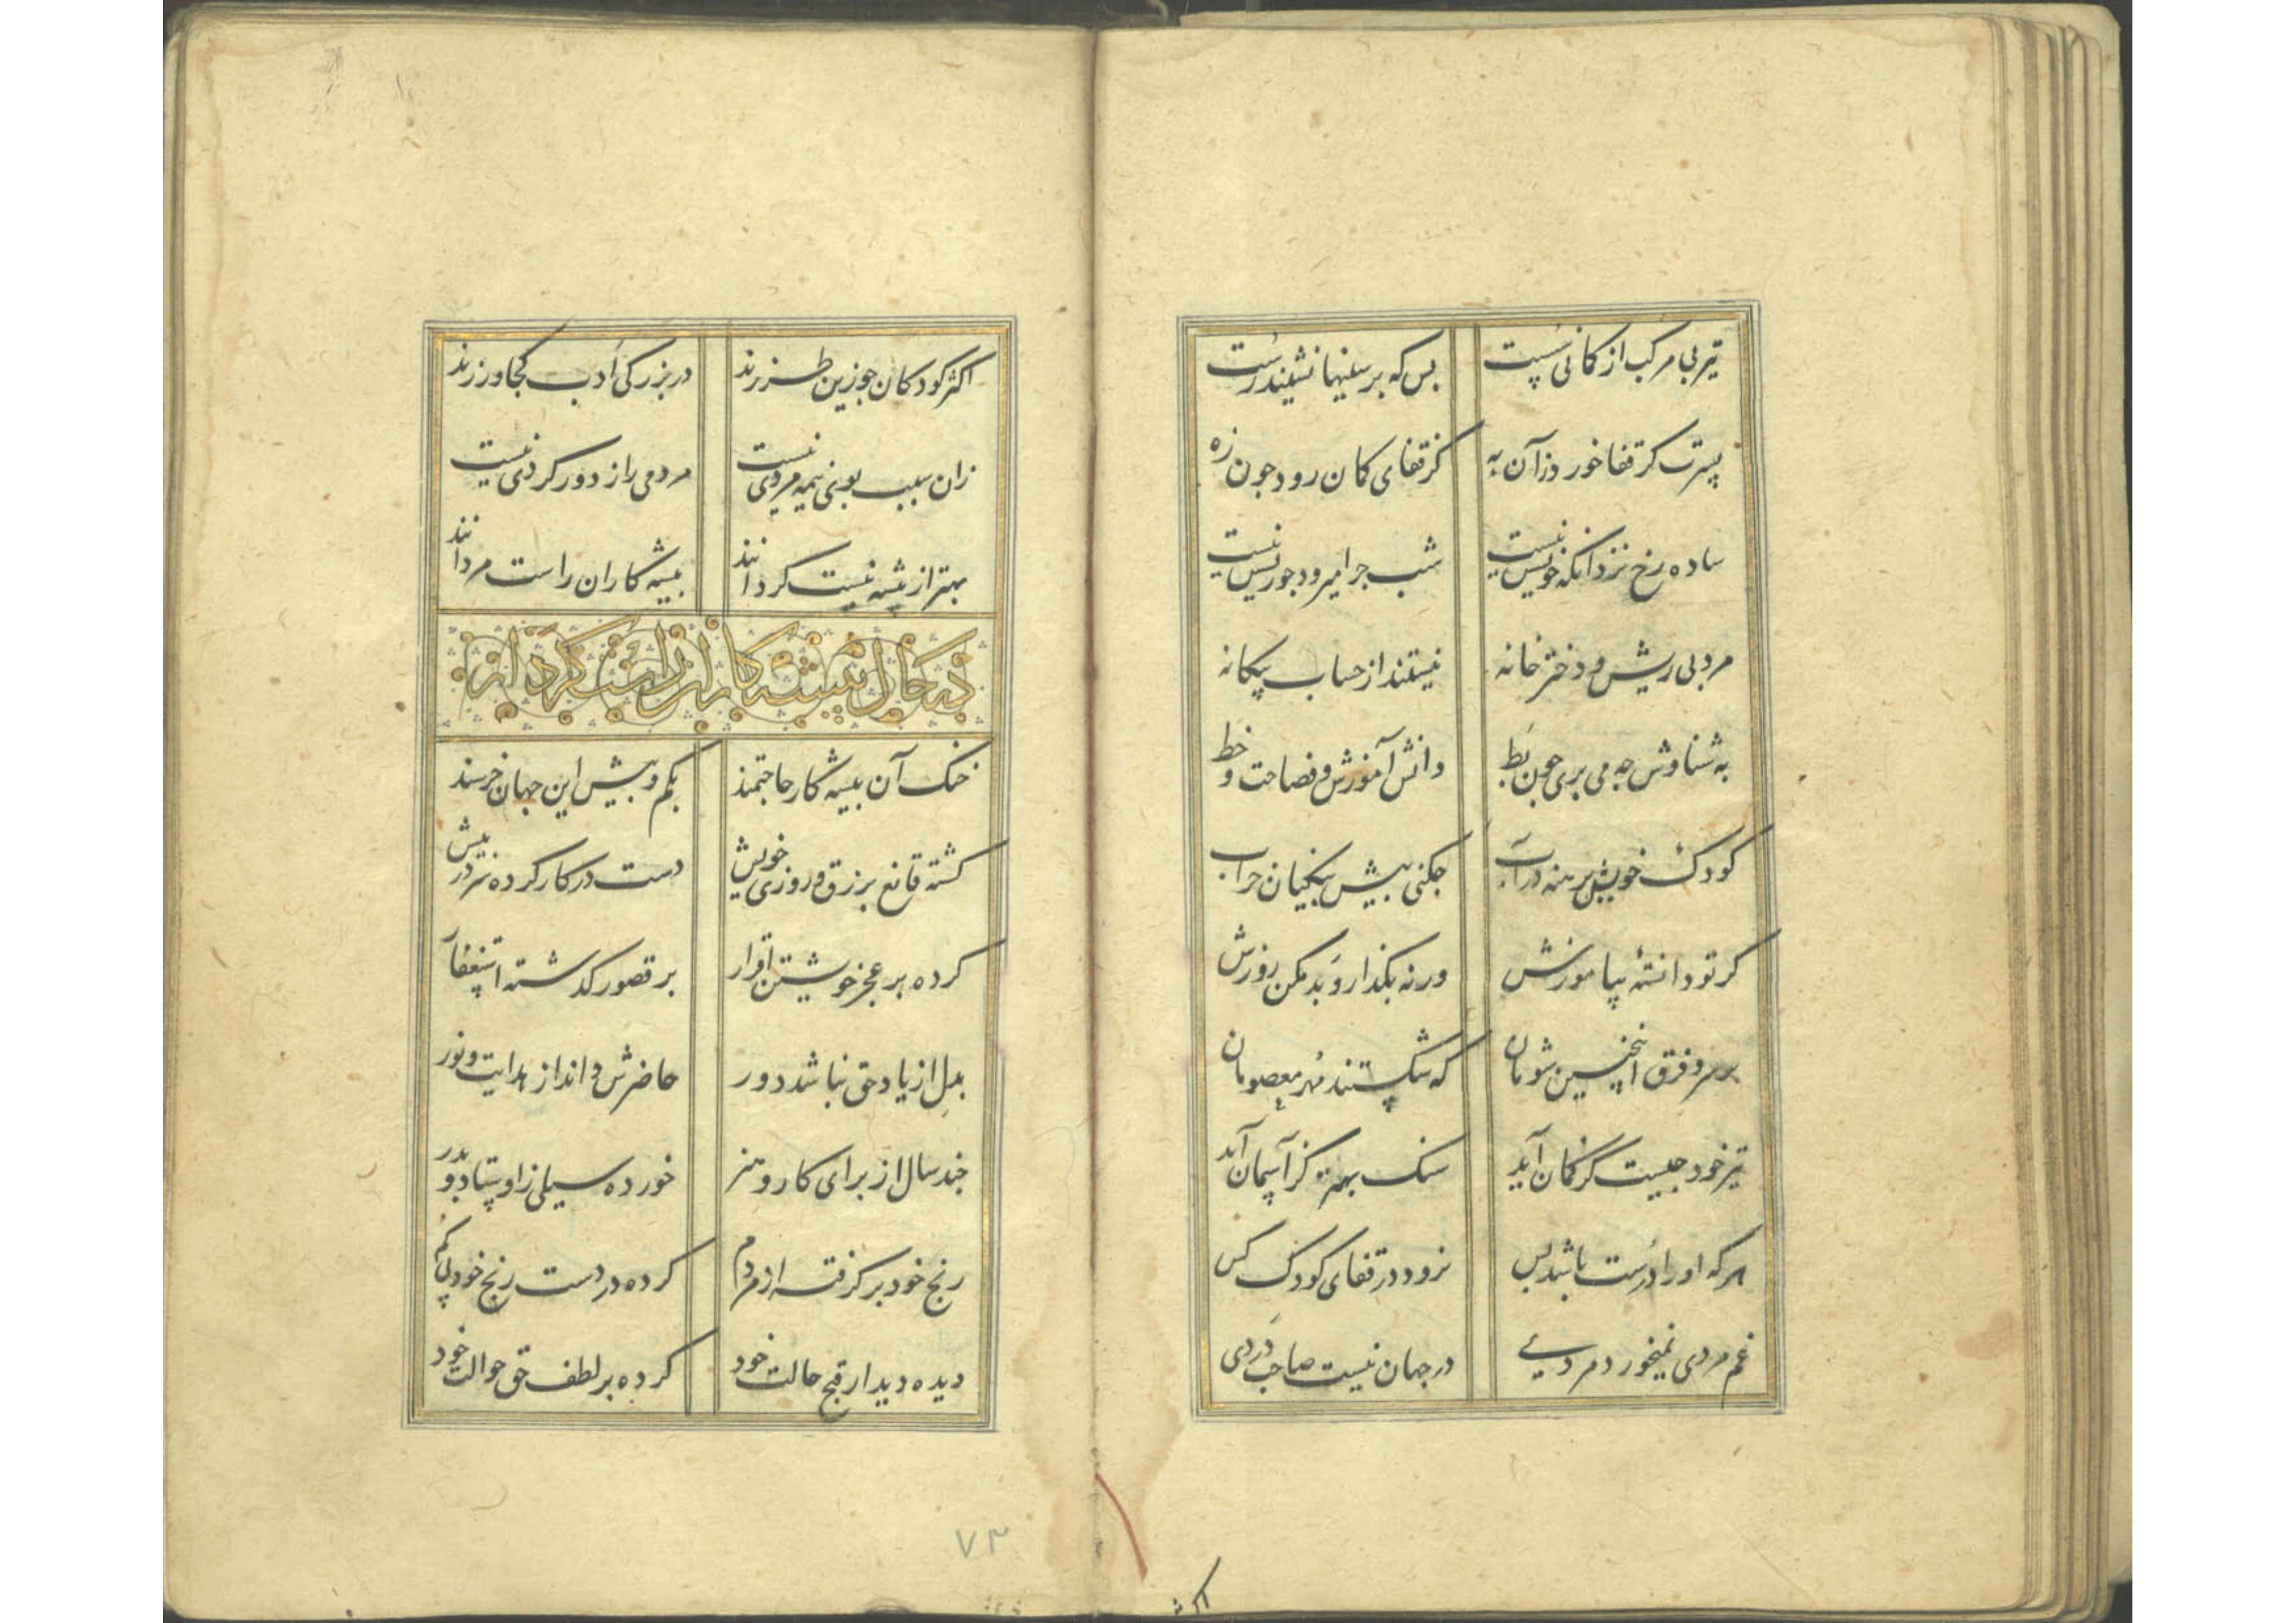 تیر بی مرکب از کمانی سست بس که بر سینها نشیند رست
پسرت کر قفا خورد زآن به کز قفای کمان رود جون زه
ساده رخ نزد آنکه خویش نیست شب جرا میرود جو ریش نیست
مرد بی ریش و دختر خانه نیستند از حساب بیکانه
به شناوش جه می بری جون بط دانش آموزش و فصاحت و خط
کودک خویش برهنه در آب جکنی پیش بنکیان خراب
کر تو دانستهٔ بیاموزش ورنه بکذار و بد مکن روزش
بر سر و فرق اینجنین شومان که شکستند مهر معصومان
تیر خود جیست کز کمان آید سنک بهتر کز آسمان آید
هر که او را درست باشد پس نرود در قفای کودک کس
غم مردی نمیخورد مردی در جهان نیست صاحب دردی
اکثر
اکثر کودکان جو زین طرزند در بزرکی ادب کجا ورزند
زان سبب بوی نیمه مردی نیست مردمی را ز دور کردی نیست
بهتر از پیشه نیست کر دانند پیشه کاران راست مردانند
در حال پیشه کاران راست کردار
خنک آن پیشه کار حاجتمند بکم و بیش این جهان خرسند
کشته قانع برزق و روزی خویش دست در کار کرده سر در پیش
کرده بر عجز خویشتن اقرار بر قصور کذشته استغفار
بدل از یاد حق نباشد دور حاضرش داند از هدایت و نور
جند سال از برای کار و هنر خورده سیلی ز اوستاد و بدر
رنج خود بر کرفته از مردم کرده در دست رنج خود پی کم
دیده دیدار قبح حالت خود کرده بر لطف حق حوالت خود
۷۳